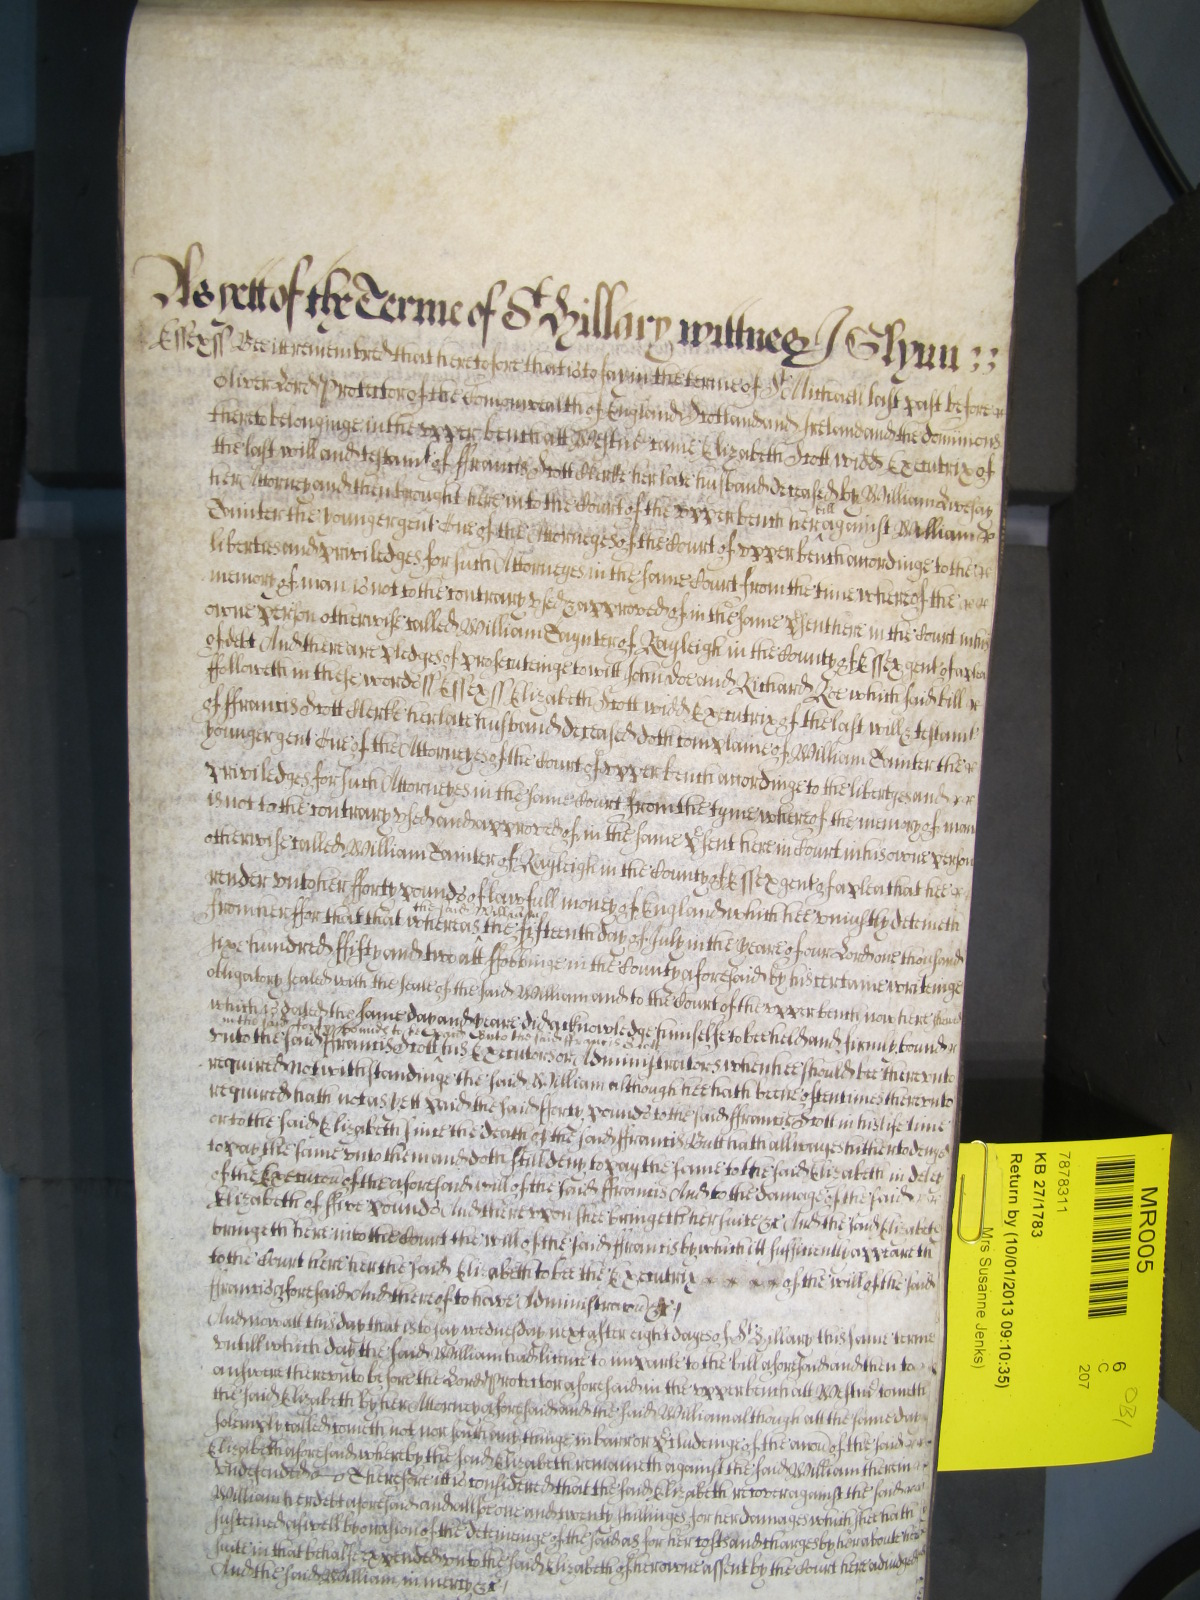 As yett of the Terme of St Hillary wittnes J Glynn
Essex ss Bee it remembred that heretofore that is to say in the terme of St Michaell last past before
Oliver Lord Protector of the Comonwealth of England Scotland and Ireland and the dominions
thereto belonginge in the upper bench att Westm̃ came Elizabeth Scott widd Executrix of
the last will and testamt of ffrancis Scott Clerke her late husband deceased by William Livesay
her Attorney and then brought here into the Court of the upper bench her bill against William
Painter the younger gent One of the Attorneyes of the Court of upper bench accordinge to the
liberties and priviledges for such Attorneyes in the same Court from the time whereof the
memory of man is not to the contrary used & approved of in the same p̃sent here in the Court in his
owne person otherwise called William Paynter of Rayleigh in the County of Essex gent of a plea
of debt And there are pledges of prosecuteinge to witt John Doe and Richard Roe which said bill
followeth in these wordes ss Essex ss Elizabeth Scott widd Executrix of the last will & testamt
of ffrancis Scott Clerke her late husband deceased doth complaine of William Painter the
younger gent One of the Attorneyes of the Court of upper bench accordinge to the libertyes and
priviledges for such Attorneyes in the same Court from the tyme whereof the memory of man
is not to the contrary used and approved of in the same p̃sent here in Court in his owne person
otherwise called William Painter of Rayleigh in the County of Essex gent of a plea that hee
render unto her fforty pounds of lawfull money of England which hee uniustly deteineth
from her ffor that that whereas the said William the fifteenth day of July in the yeare of our Lord one thousand
six hundred ffifty and two att ffobbinge in the County aforesaid by his certaine writeinge
obligatory sealed with the seale of the said William and to the Court of the upper bench now here shewed
which is dated the same day and yeare did acknowledge himselfe to bee held and firmly bound
unto the said ffrancis Scott in the said forty pounds to be paid unto the said ffrancis Scott his Executors or Administrators when hee should bee thereunto
required Notwithstandinge the said William although hee hath beene oftentimes thereunto
required hath not as yett paid the said fforty pounds to the said ffrancis Scott in his life time
or to the said Elizabeth since the death of the said ffrancis But hath allwayes hitherto denyed
to pay the same unto them and doth still deny to pay the same to the said Elizabeth in delay
of the Execucon of the aforesaid will of the said ffrancis And to the damage of the said
Elizabeth of ffive pounds And thereupon shee bringeth her suite &c And the said Elizabeth
bringeth here into the Court the will of the said ffrancis by which itt sufficiently appeareth
to the Court here her the said Elizabeth to bee the Executrix of the will of the said
ffrancis aforesaid And thereof to have Administracon &c
And now att this day that is to say wednesday next after eight dayes of St Hillary this same terme
untill which day the said William had licence to imparle to the bill aforesaid and then to
answere thereunto before the Lord Protector aforesaid in the upper bench att Westm̃ cometh
the said Elizabeth by her Attorney aforesaid and the said William although att the same day
solemply called cometh not nor saith any thinge in barr or p̃cludeinge of the accon of the said
Elizabeth aforesaid whereby the said Elizabeth remaineth against the said William therein
undefended Therefore itt is considered that the said Elizabeth recover against the said
William her debt aforesaid and allsoe one and twenty shillinges for her damages which shee hath
susteined as well by occasion of the deteininge of the said as for her costs and charges by her about her
suite in that behalfe expended unto the said Elizabeth of her owne assent by the Court here adiudged
And the said William in mercy &c
MR005
7878311
KB 27/1783
Return by (10/01/2013 09:10:35)
Mrs Susanne Jenks)
6
C
207